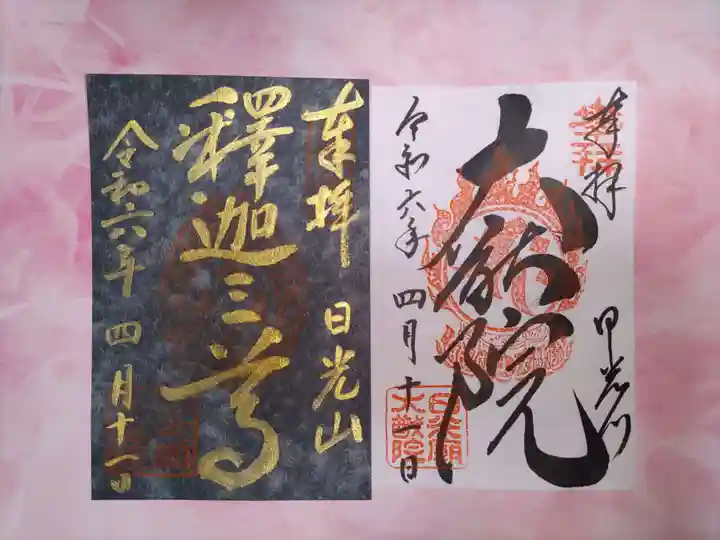 奉拝
日光山
釋迦三尊
令和六年四月十一日
奉拝
日光山
大猷院
令和六年四月十一日
日光廟
大猷院